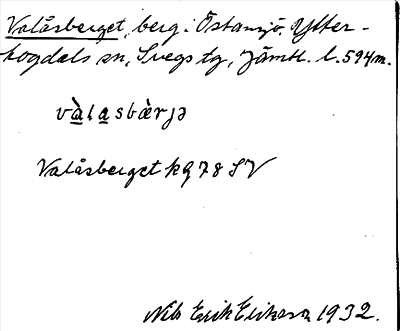 Valåsberget, berg. Östansjö. Ytter-
hogdals sn, Svegs tg, Jämtl. l. 594 m.
vàlasbæ̀rjə
Valåsberget kg 78 SV
Nils Erik Eriksson 1932.